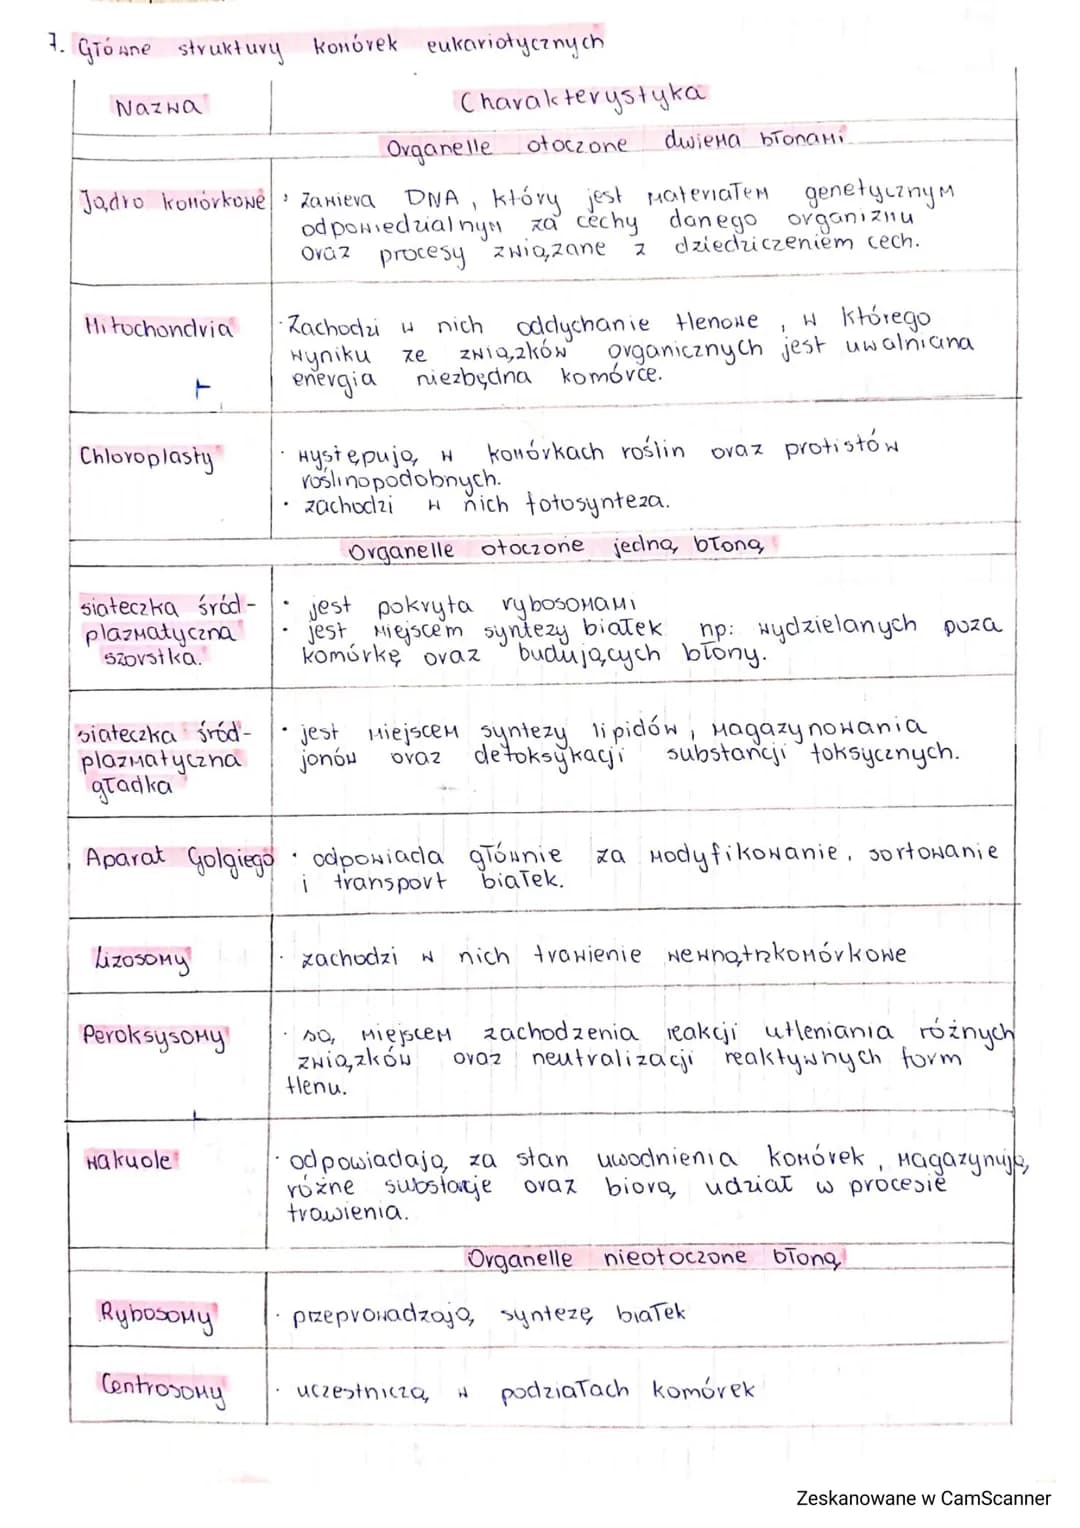 7. Główne struktury komórek eukariotycznych
Nazwa Charakterystyka
Organelle otoczone dwiema błonami
Jądro komórkowe · Zawiera DNA, który jest materiałem genetycznym
odpowiedzialnym za cechy danego organizmu
oraz procesy związane z dziedziczeniem cech.
Mitochondria · Zachodzi w nich oddychanie tlenowe, w którego
wyniku ze związków organicznych jest uwalniana
energia niezbędna komórce.
Chloroplasty · występują w komórkach roślin oraz protistów
roślinopodobnych.
· zachodzi w nich fotosynteza.
Organelle otoczone jedną błoną
siateczka śród- · jest pokryta rybosomami
plazmatyczna · jest miejscem syntezy białek np: wydzielanych poza
szorstka. komórkę oraz budujących błony.
siateczka śród- · jest miejscem syntezy lipidów, magazynowania
plazmatyczna jonów oraz detoksykacji substancji toksycznych.
gładka
Aparat Golgiego · odpowiada głównie za modyfikowanie, sortowanie
i transport białek.
Lizosomy · zachodzi w nich trawienie wewnątrzkomórkowe
Peroksysomy · są miejscem zachodzenia reakcji utleniania różnych
związków oraz neutralizacji reaktywnych form
tlenu.
wakuole · odpowiadają za stan uwodnienia komórek, magazynują,
różne substancje oraz biorą udział w procesie
trawienia.
Organelle nieotoczone błoną
Rybosomy · przeprowadzają syntezę białek
Centrosomy · uczestniczą w podziałach komórek
Zeskanowane w CamScanner